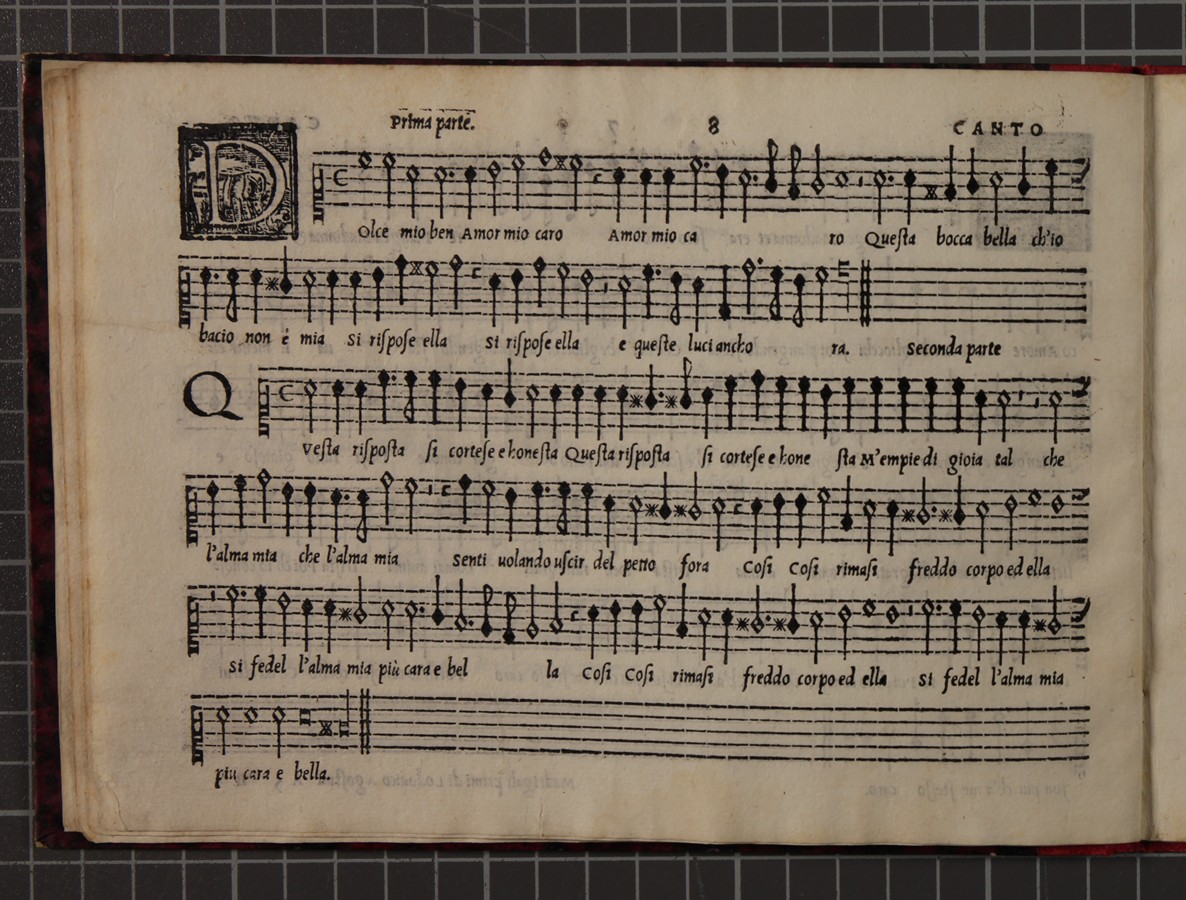 Prima parte. 8 CANTO
DOlce mio ben Amor mio caro Amor mio ca ro Queſta bocca bella ch'io
bacio non è mia Si riſpoſe ella Si riſpoſe ella e queſte luci ancho ra. Seconda parte
QVeſta riſpoſta ſi corteſe e honeſta Queſta riſpoſta ſi corteſe e hone ſta M'empie di gioia tal che
l'alma mia che l'alma mia Senti uolando uſcir del petto fora Coſi Coſi rimaſi freddo corpo ed ella
Si fedel l'alma mia più cara e bel la Coſi Coſi rimaſi freddo corpo ed ella Si fedel l'alma mia
piu cara e bella.